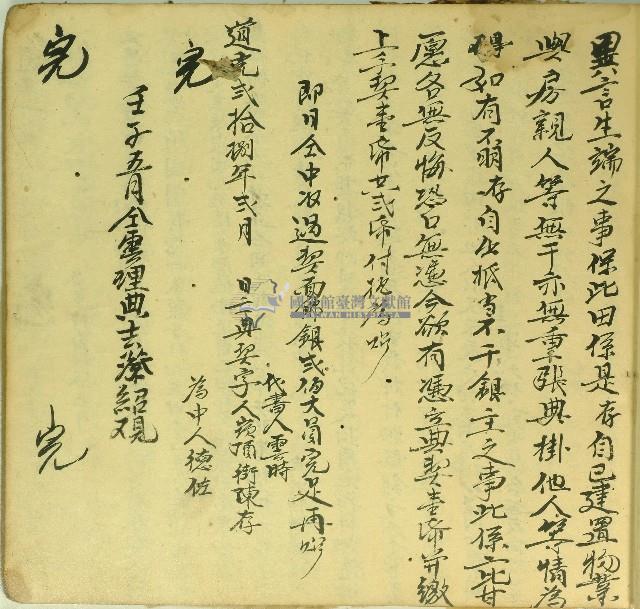 異言生端之事保此田係是存自己建置物業
與房親人等無干亦無重張典掛他人等情為
碍如有不明存自出抵當不干銀主之事此係二比甘
愿各無反悔恐口無憑今欲有憑立典契壹帋并繳
上手契壹帋共弍帋付执為炤
即日仝中收過契面銀弍佰大員完足再炤
代書人雲時
道光弍拾捌年弍月 日立典契字人 街陳存
為中人德佐
完
壬子五月仝雲理典去 紹观
完
完
國史館臺灣文獻館
TAIWAN HISTORICA